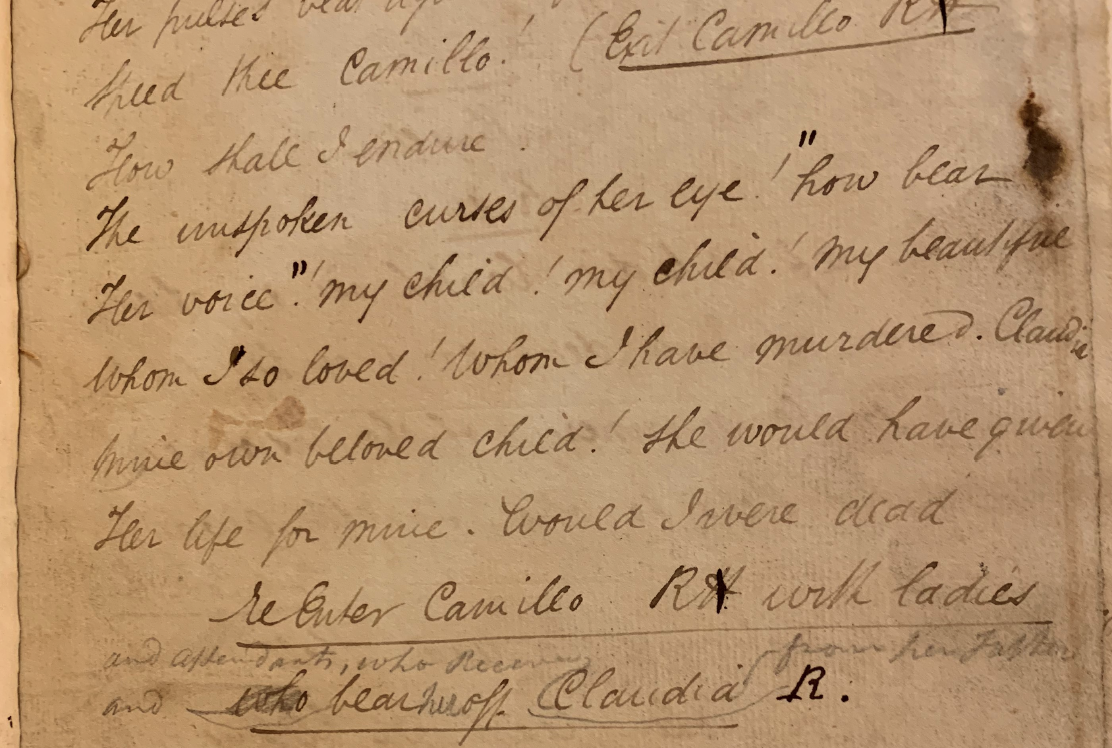 Her pulses beat
Speed thee Camillo! (Exit Camillo RH
How shall I endure
The unspoken curses of her eye! "how bear
Her voice"! my child! my child! my beautiful
Whom I so loved! Whom I have murdered. Claudia
mine own beloved child! She would have given
Her life for mine. Would I were dead
ReEnter Camillo RH with ladies
and attendants, who Receive from her Father
and who bear her off Claudia R.